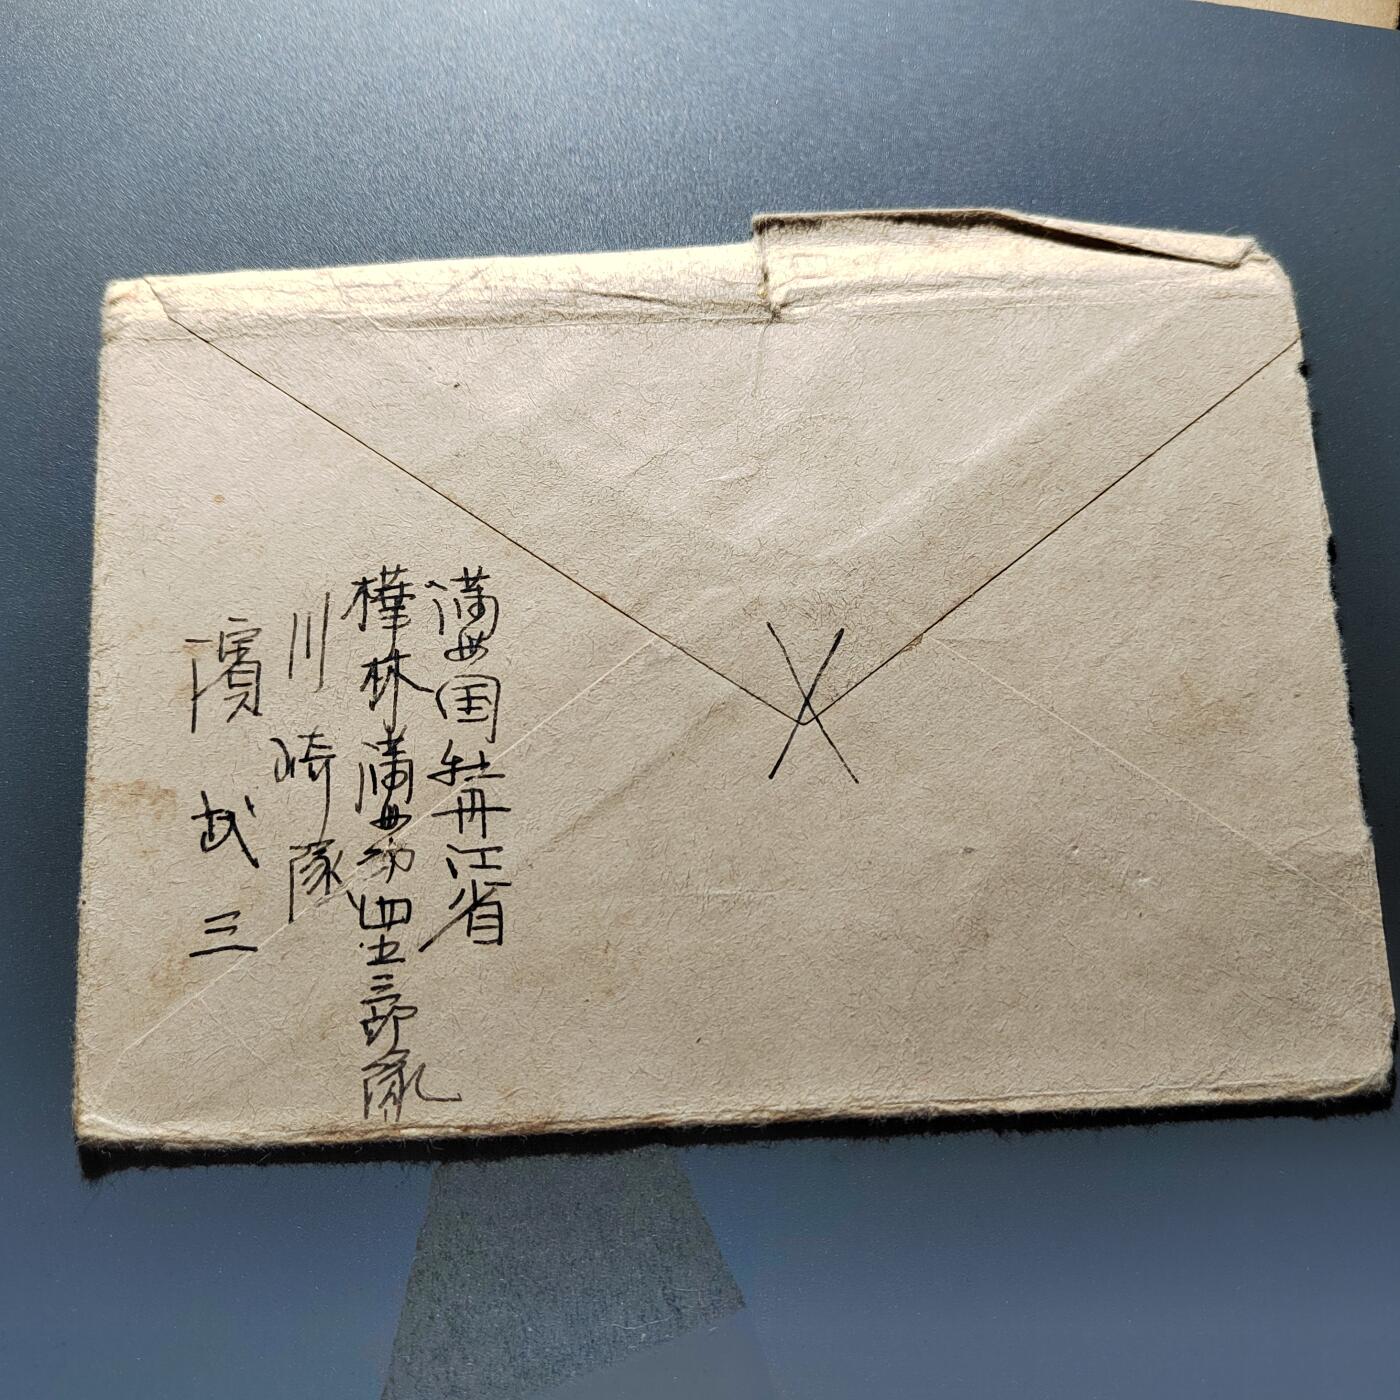 満州国牡丹江省
樺林満州第四五三部隊
川崎隊
濱武三